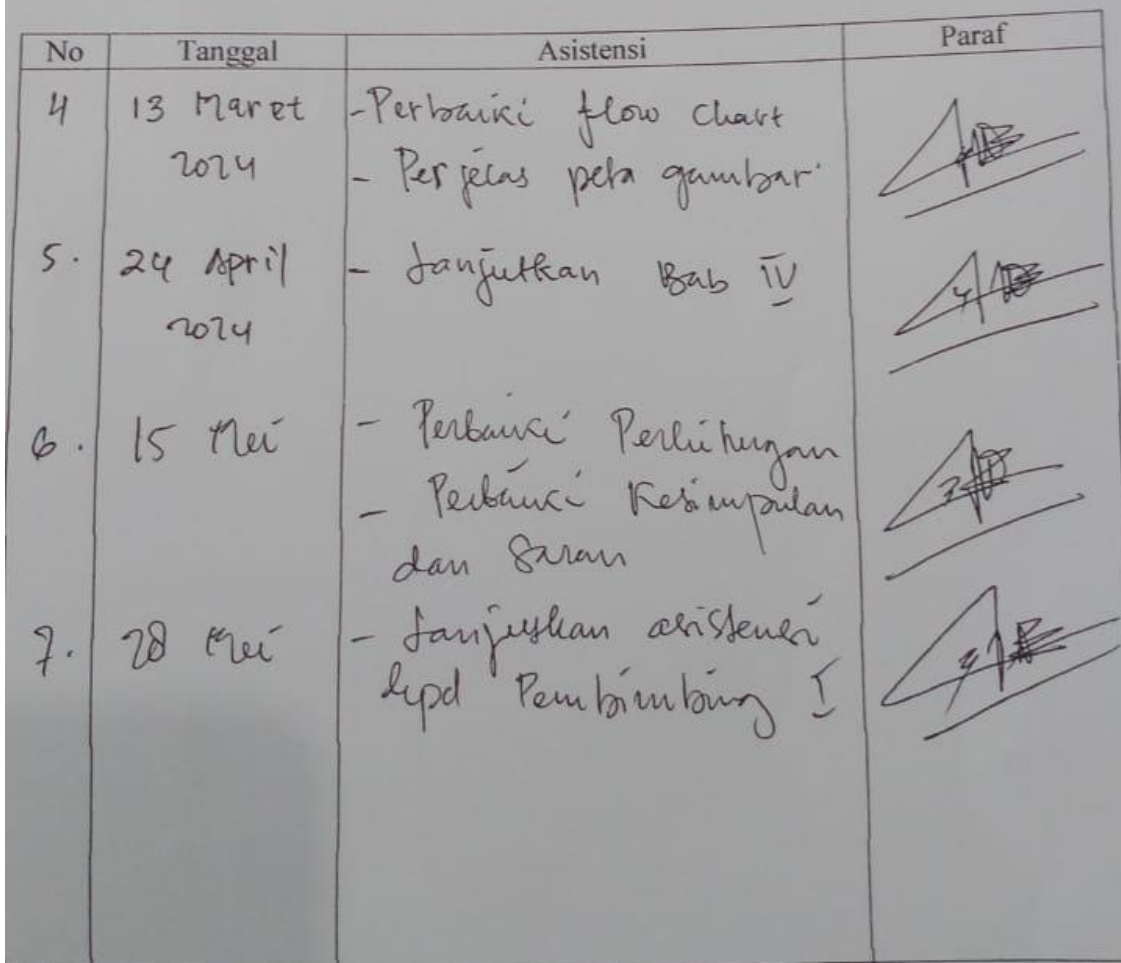 No Tanggal Asistensi Paraf
4 13 Maret -Perbaiki flow Chart
2024 - Perjelas peta gambar
5. 24 April - Lanjutkan Bab IV
2024
6. 15 Mei - Perbaiki Perhitungan
- Perbaiki Kesimpulan
dan Saran
7. 28 Mei - Lanjutkan asistensi
kpd Pembimbing I